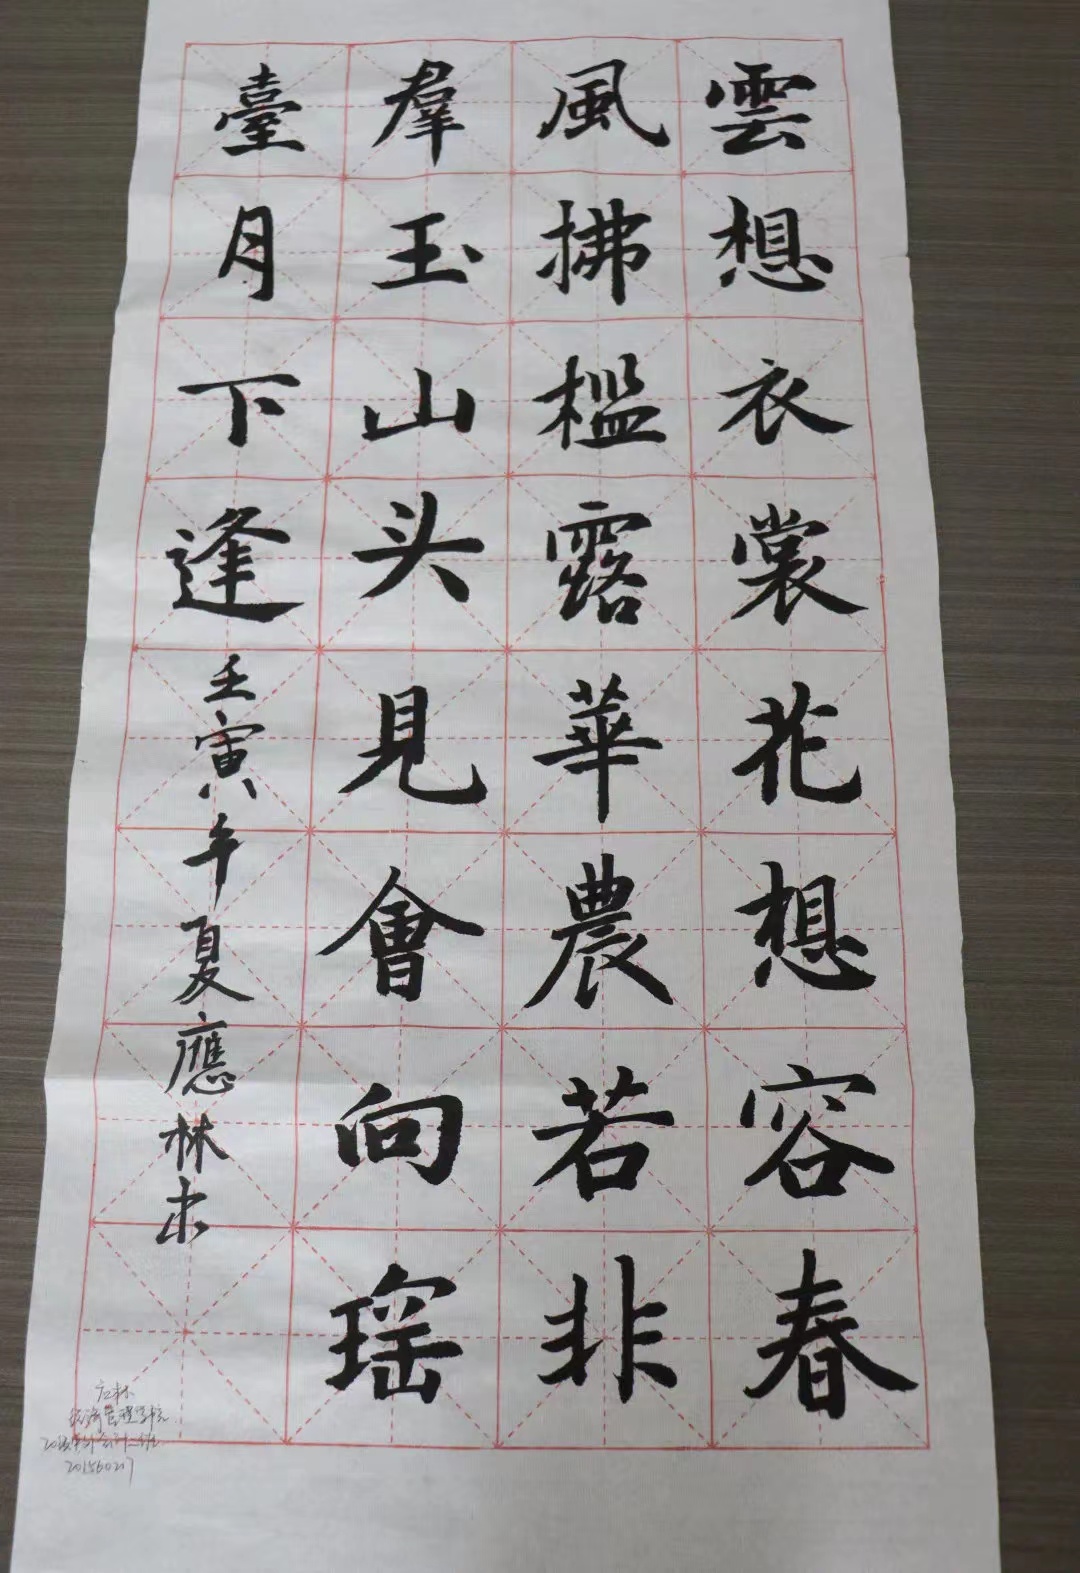 雲想衣裳花想容春
風拂檻露華農若非
羣玉山头見會向瑶
臺月下逢
壬寅年夏應林书
应林
经济管理学院